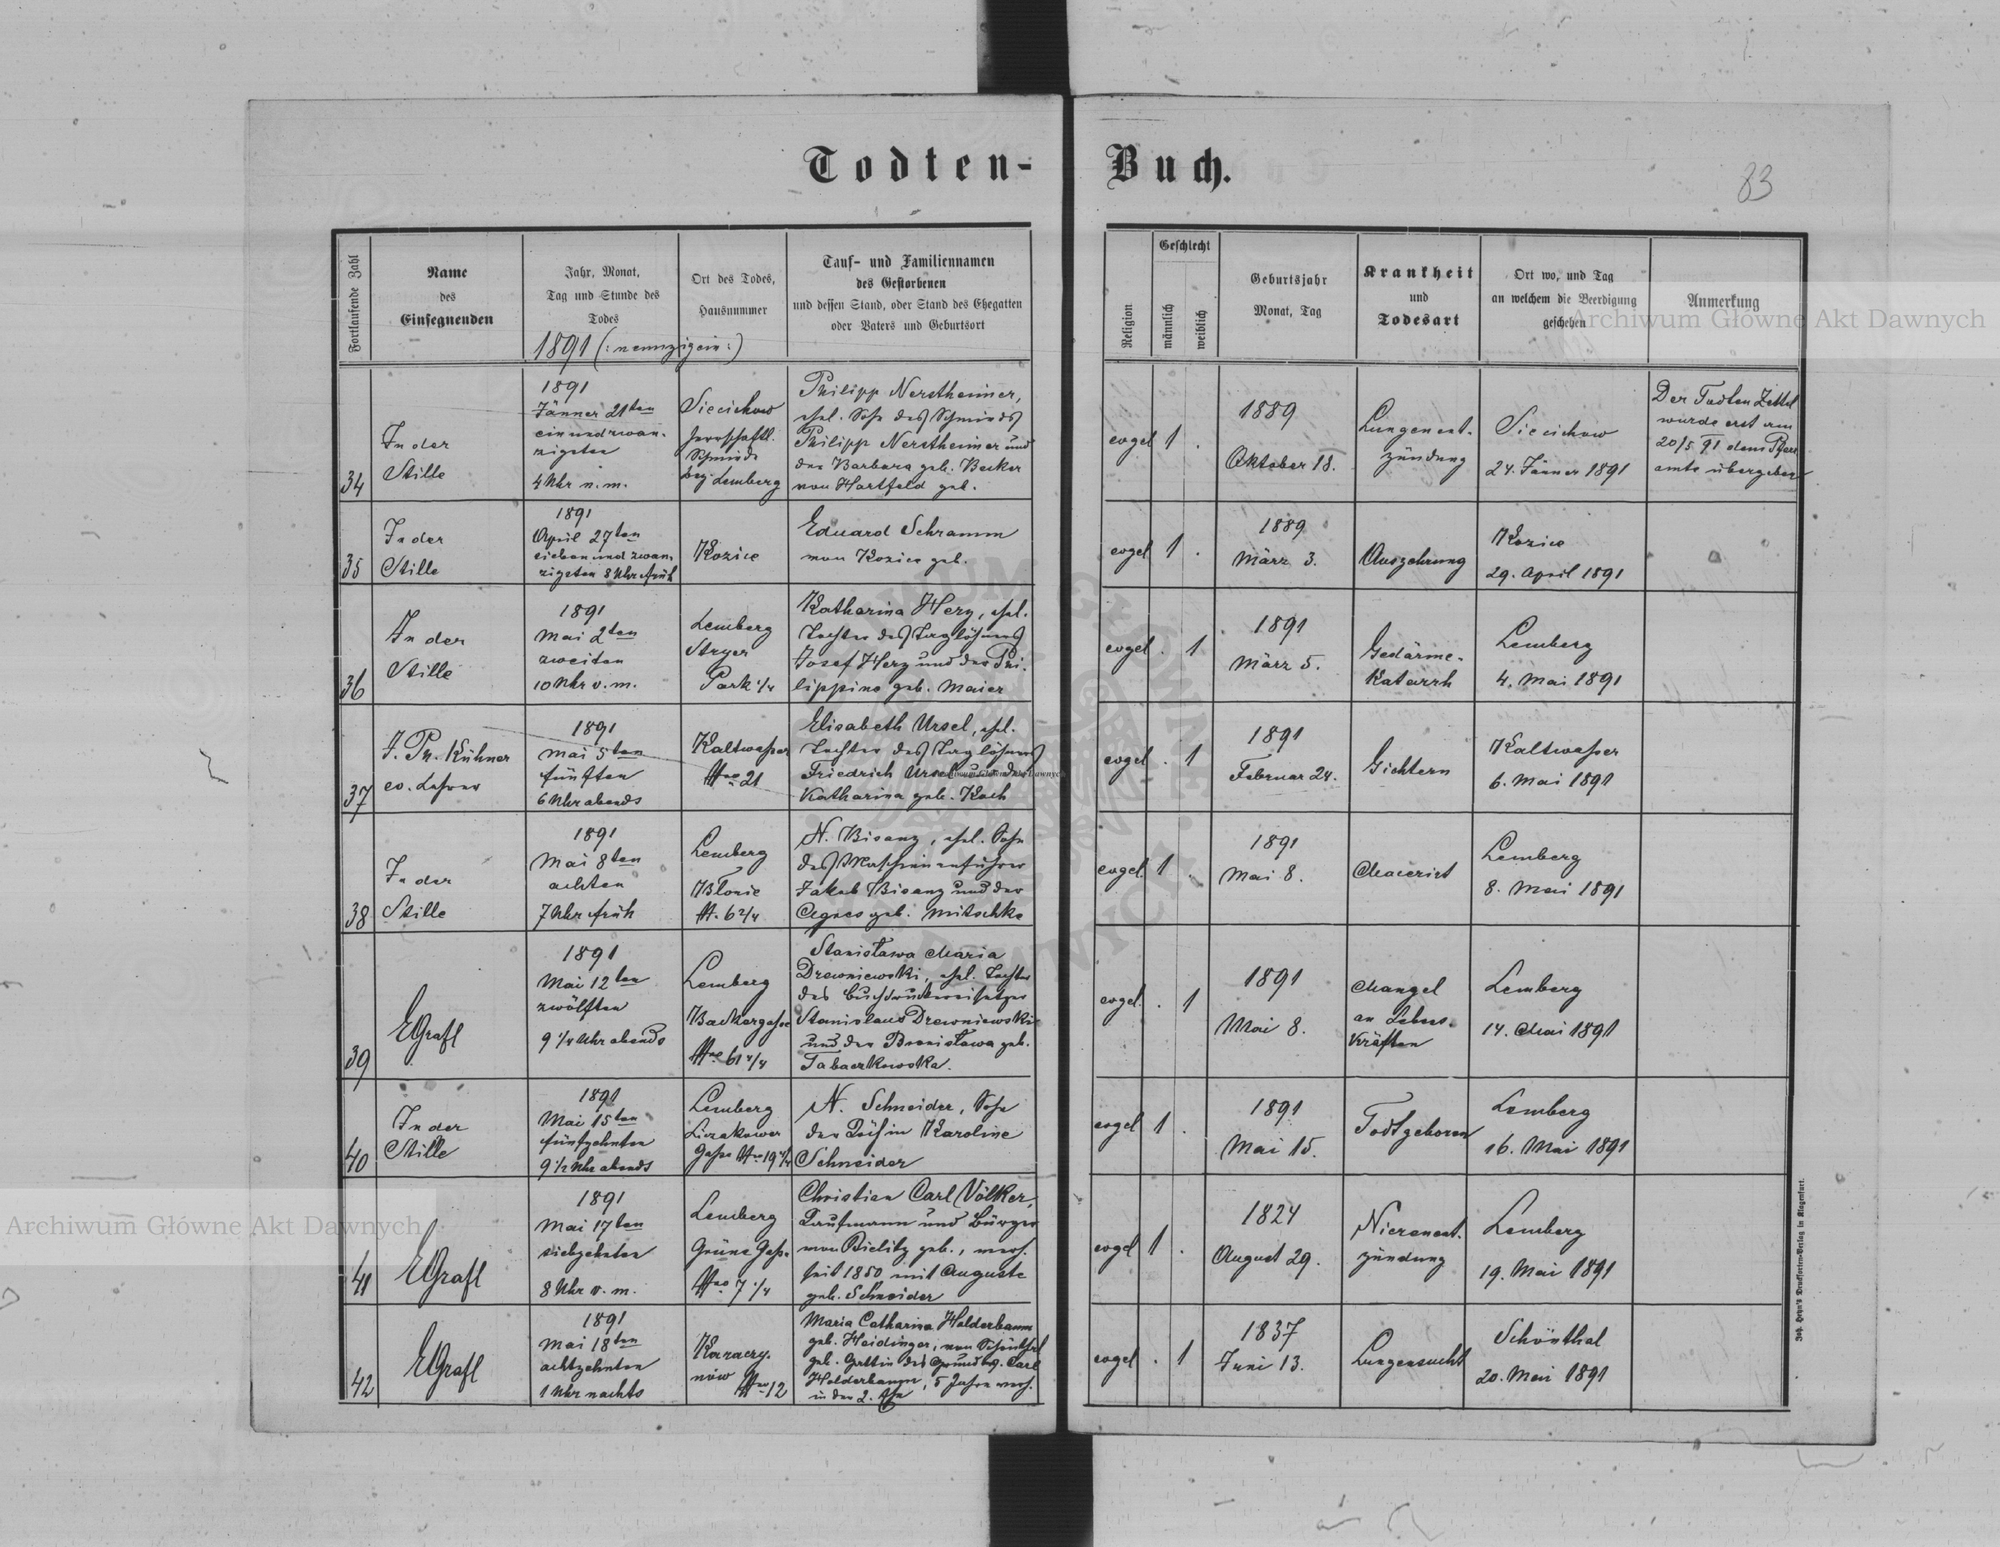 Todten-Buch.
83
Fortlaufende Zahl
Name
des
Einsegnenden
Jahr, Monat,
Tag und Stunde des
Todes
1891 (: neunzigein :)
Ort des Todes,
Hausnummer
Tauf- und Familiennamen
des Gestorbenen
und dessen Stand, oder Stand des Ehegatten
oder Vaters und Geburtsort
Religion
Geschlecht
männlich
weiblich
Geburtsjahr
Monat, Tag
Krankheit
und
Todesart
Ort wo, und Tag
an welchem die Beerdigung
geschehen
Anmerkung
Archiwum Główne Akt Dawnych
34
In der
Stille
1891
Jänner 21ten
ein und zwan-
zigsten
4 Uhr n. m.
Siecichow
herrschaftl.
Schmiede
bej Lemberg
Philipp Nerstheimer,
ehel. Sohn des Schmieds
Philipp Nerstheimer und
der Barbara geb. Becker
von Hartfeld geb.
evgel
1 .
1889
Oktober 18.
Lungenent-
zündung
Siecichow
24. Jänner 1891
Der Todten Zettel
wurde erst am
20/5 91 dem Pfarr
amte übergeben
35
In der
Stille
1891
April 27ten
sieben und zwan-
zigsten 8 Uhr früh
Kozice
Eduard Schramm
von Kozice geb.
evgel
1 .
1889
März 3.
Auszehrung
Kozice
29. April 1891
36
In der
Stille
1891
Mai 2ten
zweiten
10 Uhr v. m.
Lemberg
Stryer
Park 1/4
Katharina Herz, ehel.
Tochter des Taglöhners
Josef Herz und der Phi-
lippine geb. Maier
evgel
. 1
1891
März 5.
Gedärme-
Katarrh
Lemberg
4. Mai 1891
37
J. Ph. Kühner
ev. Lehrer
1891
Mai 5ten
fünften
6 Uhr abends
Kaltwasser
Nro 21
Elisabeth Ursel, ehel.
Tochter des Taglöhners
Friedrich Ursel und der
Katharina geb. Koch
evgel
. 1
1891
Februar 24.
Gichtern
Kaltwasser
6. Mai 1891
38
In der
Stille
1891
Mai 8ten
achten
7 Uhr früh
Lemberg
Błonie
N. 6 2/4
N. Bisanz, ehel. Sohn
des Maschinenführer
Jakob Bisanz und der
Agnes geb. Mitschke
evgel
1 .
1891
Mai 8.
Lemberg
8. Mai 1891
39
EGrafl
1891
Mai 12ten
zwölften
9 1/4 Uhr abends
Lemberg
Backergasse
Nro 61 4/4
Stanisława Maria
Drewniewski, ehel. Tochter
des Buchdruckereisetzer
Stanislaus Drewniewski
und der Bronisława geb.
Tabaczkowska.
evgel.
. 1
1891
Mai 8.
Mangel
an Lebens-
Kräften
Lemberg
14. Mai 1891
40
In der
Stille
1891
Mai 15ten
fünfzehnten
9 1/2 Uhr abends
Lemberg
Gasse Nro 19 4/4
N. Schneider, Sohn
der Köchin Karoline
Schneider
evgel
1 .
1891
Mai 15.
Todtgeboren
Lemberg
16. Mai 1891
41
EGrafl
1891
Mai 17ten
siebzehnten
8 Uhr v. m.
Lemberg
Grüne Gasse
Nro 7 1/4
Christian Carl Völker,
Kaufmann und Bürger
von Bielitz geb., verh.
seit 1850 mit Auguste
geb. Schneider
evgel
1 .
1824
August 29.
Nierenent-
zündung
Lemberg
19. Mai 1891
42
EGrafl
1891
Mai 18ten
achtzehnten
1 Uhr nachts
Karaczy-
nów
Nro 12
Maria Catharina Holderbaum
geb. Heidinger, von Schönthal
geb. Gattin des Grundbes. Carl
Holderbaum, 5 Jahre verh.
in der 2. Ehe
evgel
. 1
1837
Juni 13.
Lungensucht
Schönthal
20. Mai 1891
Joh. Heyn's Drucksorten-Verlag in Klagenfurt.
Archiwum Główne Akt Dawnych